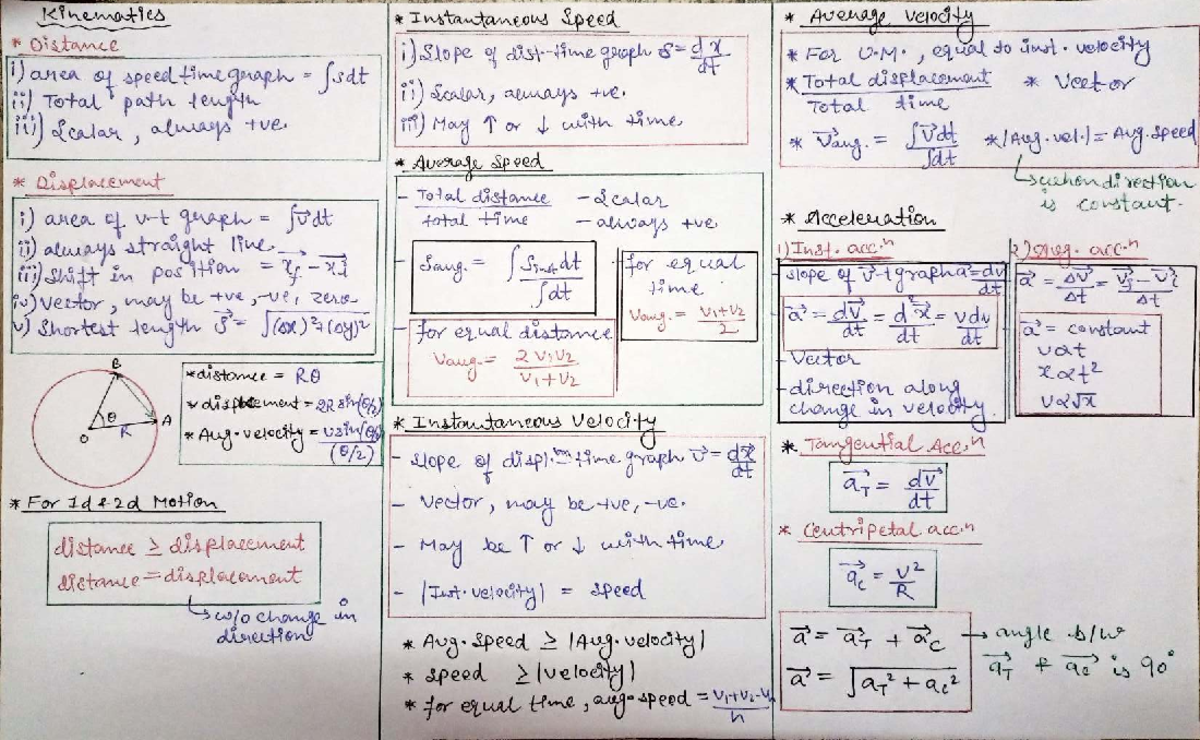 Kinematics
* Distance
i) area of speed time graph = ∫sdt
ii) Total path length
iii) Scalar, always +ve.
* Displacement
i) area of v-t graph = ∫v⃗dt
ii) always straight line
iii) Shift in position = x⃗f - x⃗i
iv) Vector, may be +ve, -ve, zero
v) Shortest length S⃗ = √(Δx)²+(Δy)²
B
O
θ
R
A
* distance = Rθ
* displacement = 2R sin(θ/2)
* Avg. velocity = v sin(θ/2)/(θ/2)
* For 1d & 2d Motion
distance ≥ displacement
distance = displacement
↳ w/o change in
direction
* Instantaneous Speed
i) Slope of dist-time graph S = dx/dt
ii) Scalar, always +ve.
iii) May ↑ or ↓ with time.
* Average Speed
- Total distance/total time - Scalar
- always +ve
- Savg. = ∫Sinst dt/∫dt
- for equal
time
Vavg. = V₁+V₂/2
- for equal distance
Vavg = 2V₁V₂/V₁+V₂
* Instantaneous Velocity
- Slope of displ. time graph v⃗ = dx⃗/dt
- Vector, may be +ve, -ve.
- May be ↑ or ↓ with time.
- |Inst. velocity| = speed
* Avg. Speed ≥ |Avg. velocity|
* Speed ≥ |velocity|
* for equal time, avg. speed = V₁+V₂--V/n
* Average velocity
* For U.M., equal to inst. velocity
* Total displacement/Total time * Vector
* V⃗avg. = ∫V⃗dt/∫dt * |Avg. vel.| = Avg. speed
↳ when direction
is constant.
* Acceleration
1) Inst. accⁿ
slope of v⃗-t graph a⃗ = dv/dt
a⃗ = dv⃗/dt = d²x⃗/dt = vdv/dt
- Vector
- direction along
change in velocity.
2) Avg. accⁿ
a⃗ = Δv⃗/Δt = v⃗f - v⃗i/Δt
a⃗ = constant
v∝t
x∝t²
v∝√x
* Tangential Acc.ⁿ
a⃗T = dv⃗/dt
* Centripetal acc.ⁿ
a⃗c = V²/R
a⃗ = a⃗T + a⃗c → angle b/w
a⃗T & a⃗c is 90°
a⃗ = √aT² + ac²